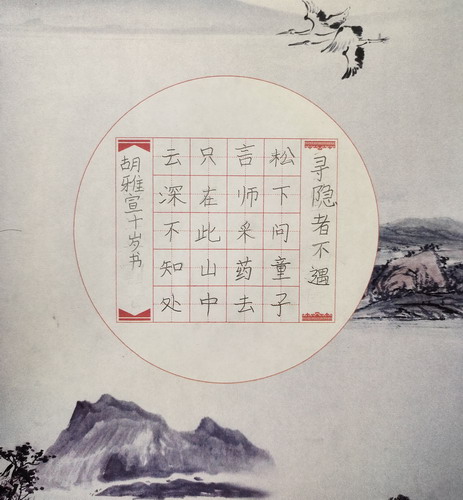 寻隐者不遇
松下问童子
言师采药去
只在此山中
云深不知处
胡雅宣十岁书